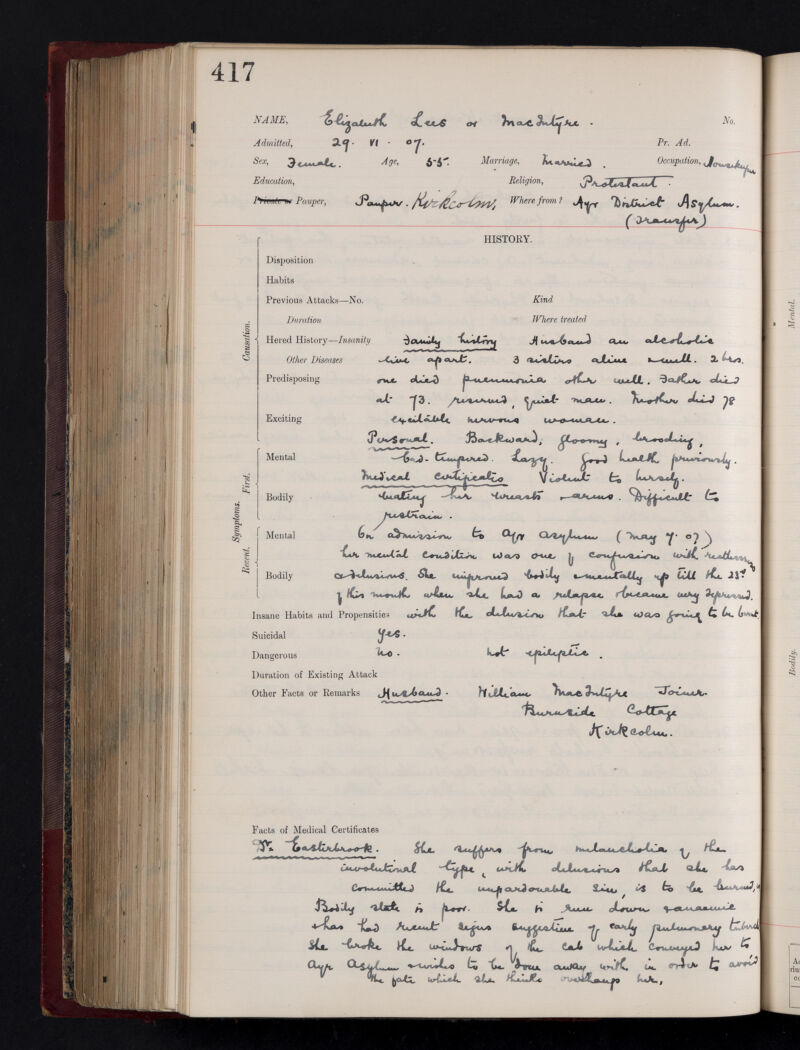 417
NAME, Elizabeth Lees or MacIntyre. No.
Admitted, 29. VI. 07. Pr. Ad.
Sex, Female. Age, 55. Marriage, Married. Occupation, Housekeeper
Education, Religion, Protestant.
Private or Pauper, Pauper. Kirkcolm, Where from? Ayr District Asylum.
(Transfer)
HISTORY.
Disposition
Habits
Previous Attacks—No. Kind
Duration Where treated
Causation.
Hered History—Insanity Family history Husband an alcoholic
Other Diseases live apart. 3 sisters alive & well. 2 bros.
Predisposing one died pneumonia other well. Father died
at 73. reserved, quiet man. Mother died 78
Exciting excitable nervous woman.
Personal. Backward, gloomy, brooding,
Symptoms.
First.
Mental bad-tempered. Lazy. Good health previously.
Medical certificates Violent to herself.
Bodily beating her breasts & arms. Difficult to
restrain.
Recent.
Mental On admission to Ayr Asylum (May 7. 07)
her mental condition was one of confusion with restlessness
Bodily & delusions. She improved bodily & mentally up till the 23rd
of this month when she had a relapse & became very depressed.
Insane Habits and Propensities with the delusion that she was going to be burnt.
Suicidal Yes.
Dangerous No. Not epileptic.
Duration of Existing Attack
Other Facts or Remarks Husband. William MacIntyre Joiner.
Burnside Cottage
Kirkcolm.
Facts of Medical Certificates
Dr. Easterbrook. She suffers from melancholia of the
involutional type, with delusions that she has
committed the unpardonable sin, is to be burned,
Bodily state is poor. She is run down & anaemic
& has had recent signs suggestive of early pulmonary
She broke the windows of the cab which conveyed her to
Ayr Asylum & wishes to be done away with in order to avoid
the fate which she thinks overhangs her.
Mental.
Bodily.